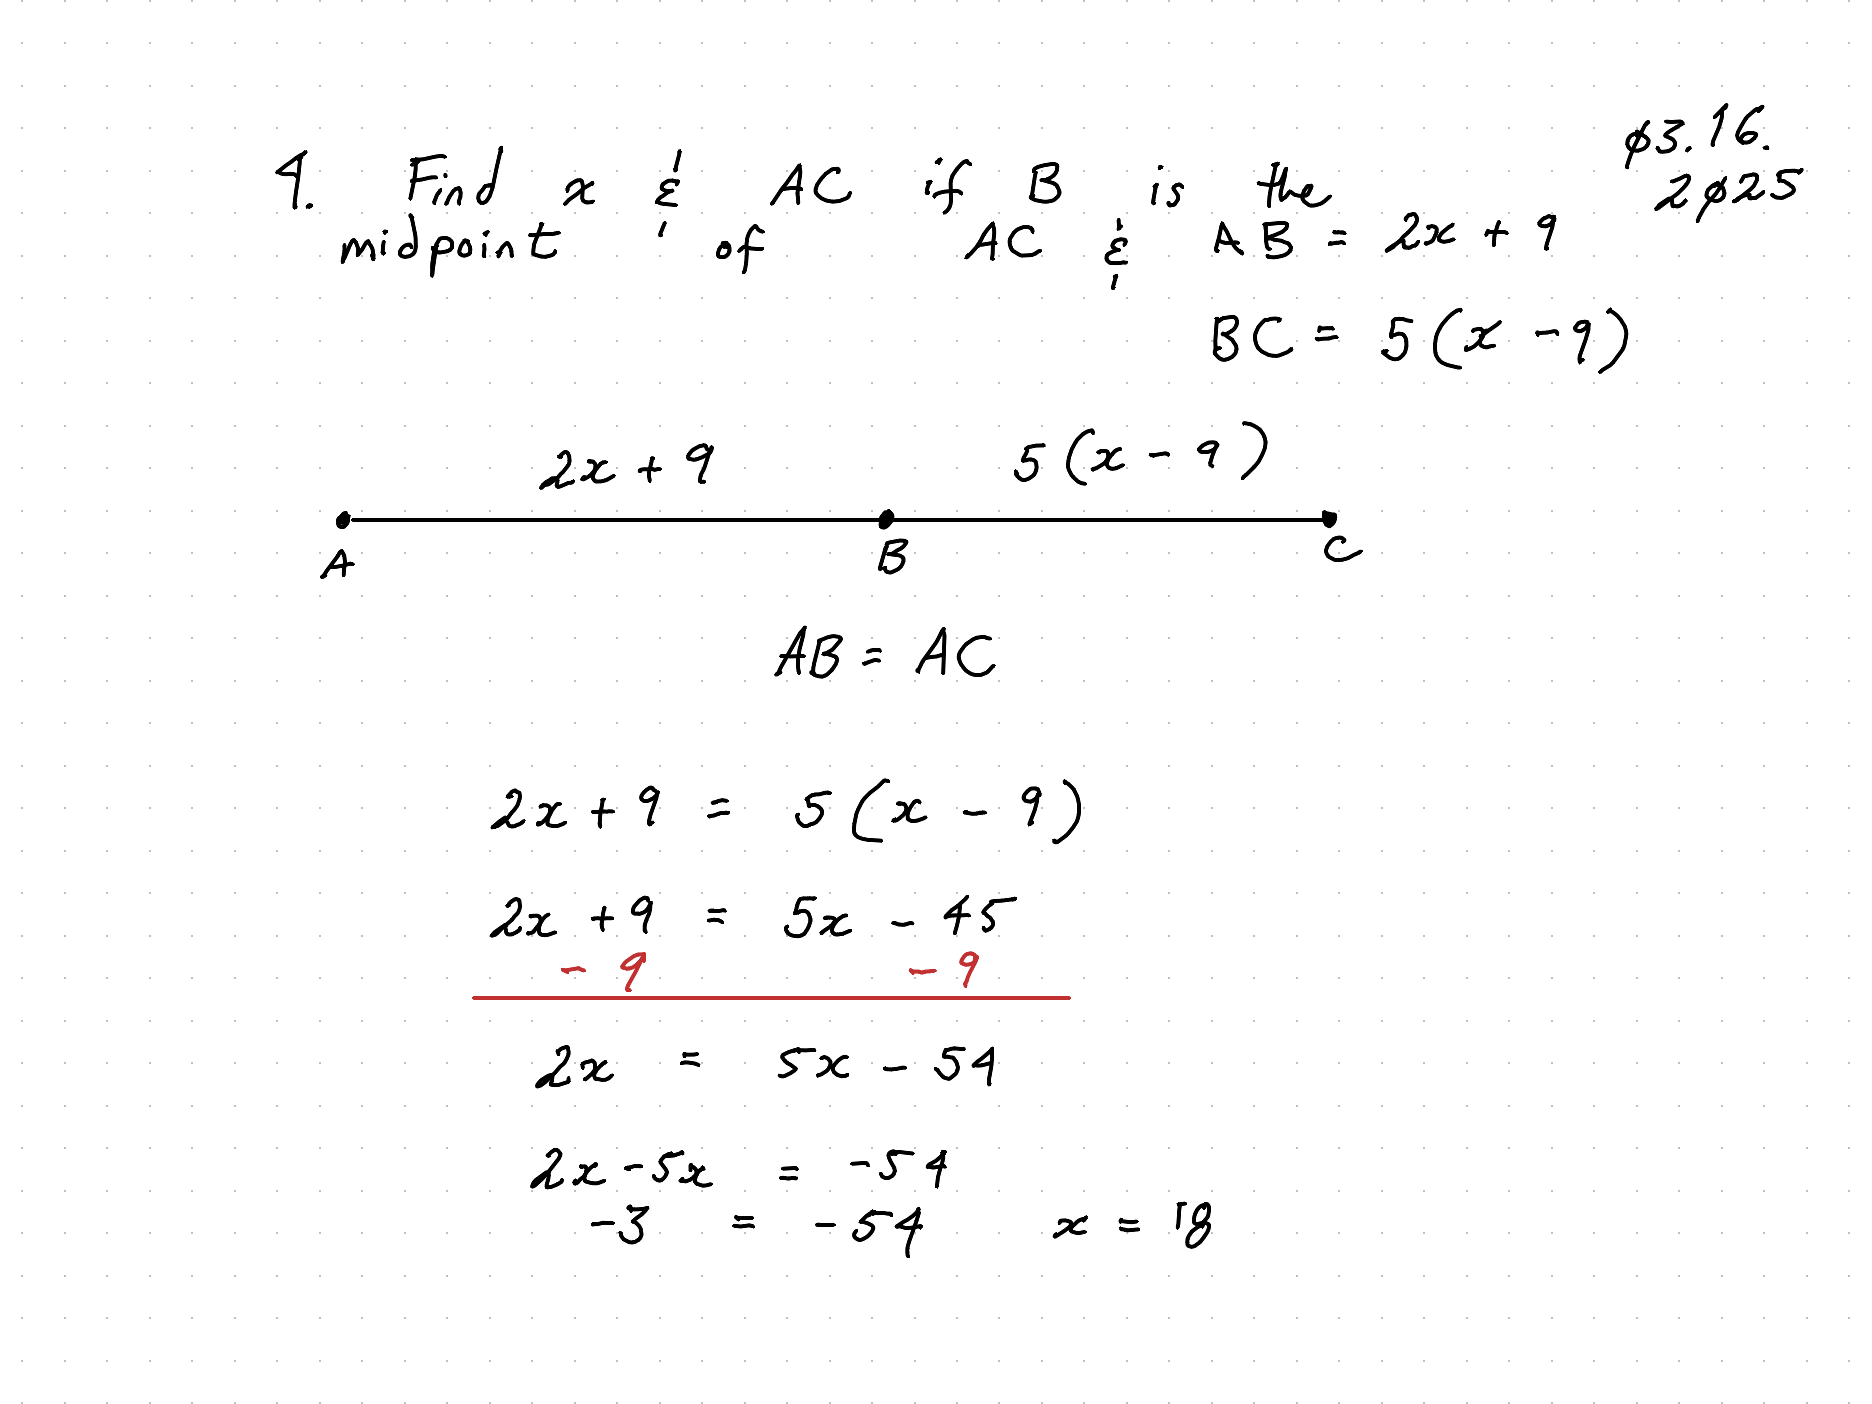 4. Find x & AC if B is the
midpoint of AC & AB = 2x + 9
BC = 5(x - 9)
ø3.16.
2ø25
2x + 9 5(x - 9)
A B C
AB = AC
2x + 9 = 5(x - 9)
2x + 9 = 5x - 45
- 9 - 9
2x = 5x - 54
2x - 5x = -54
-3 = -54 x = 18